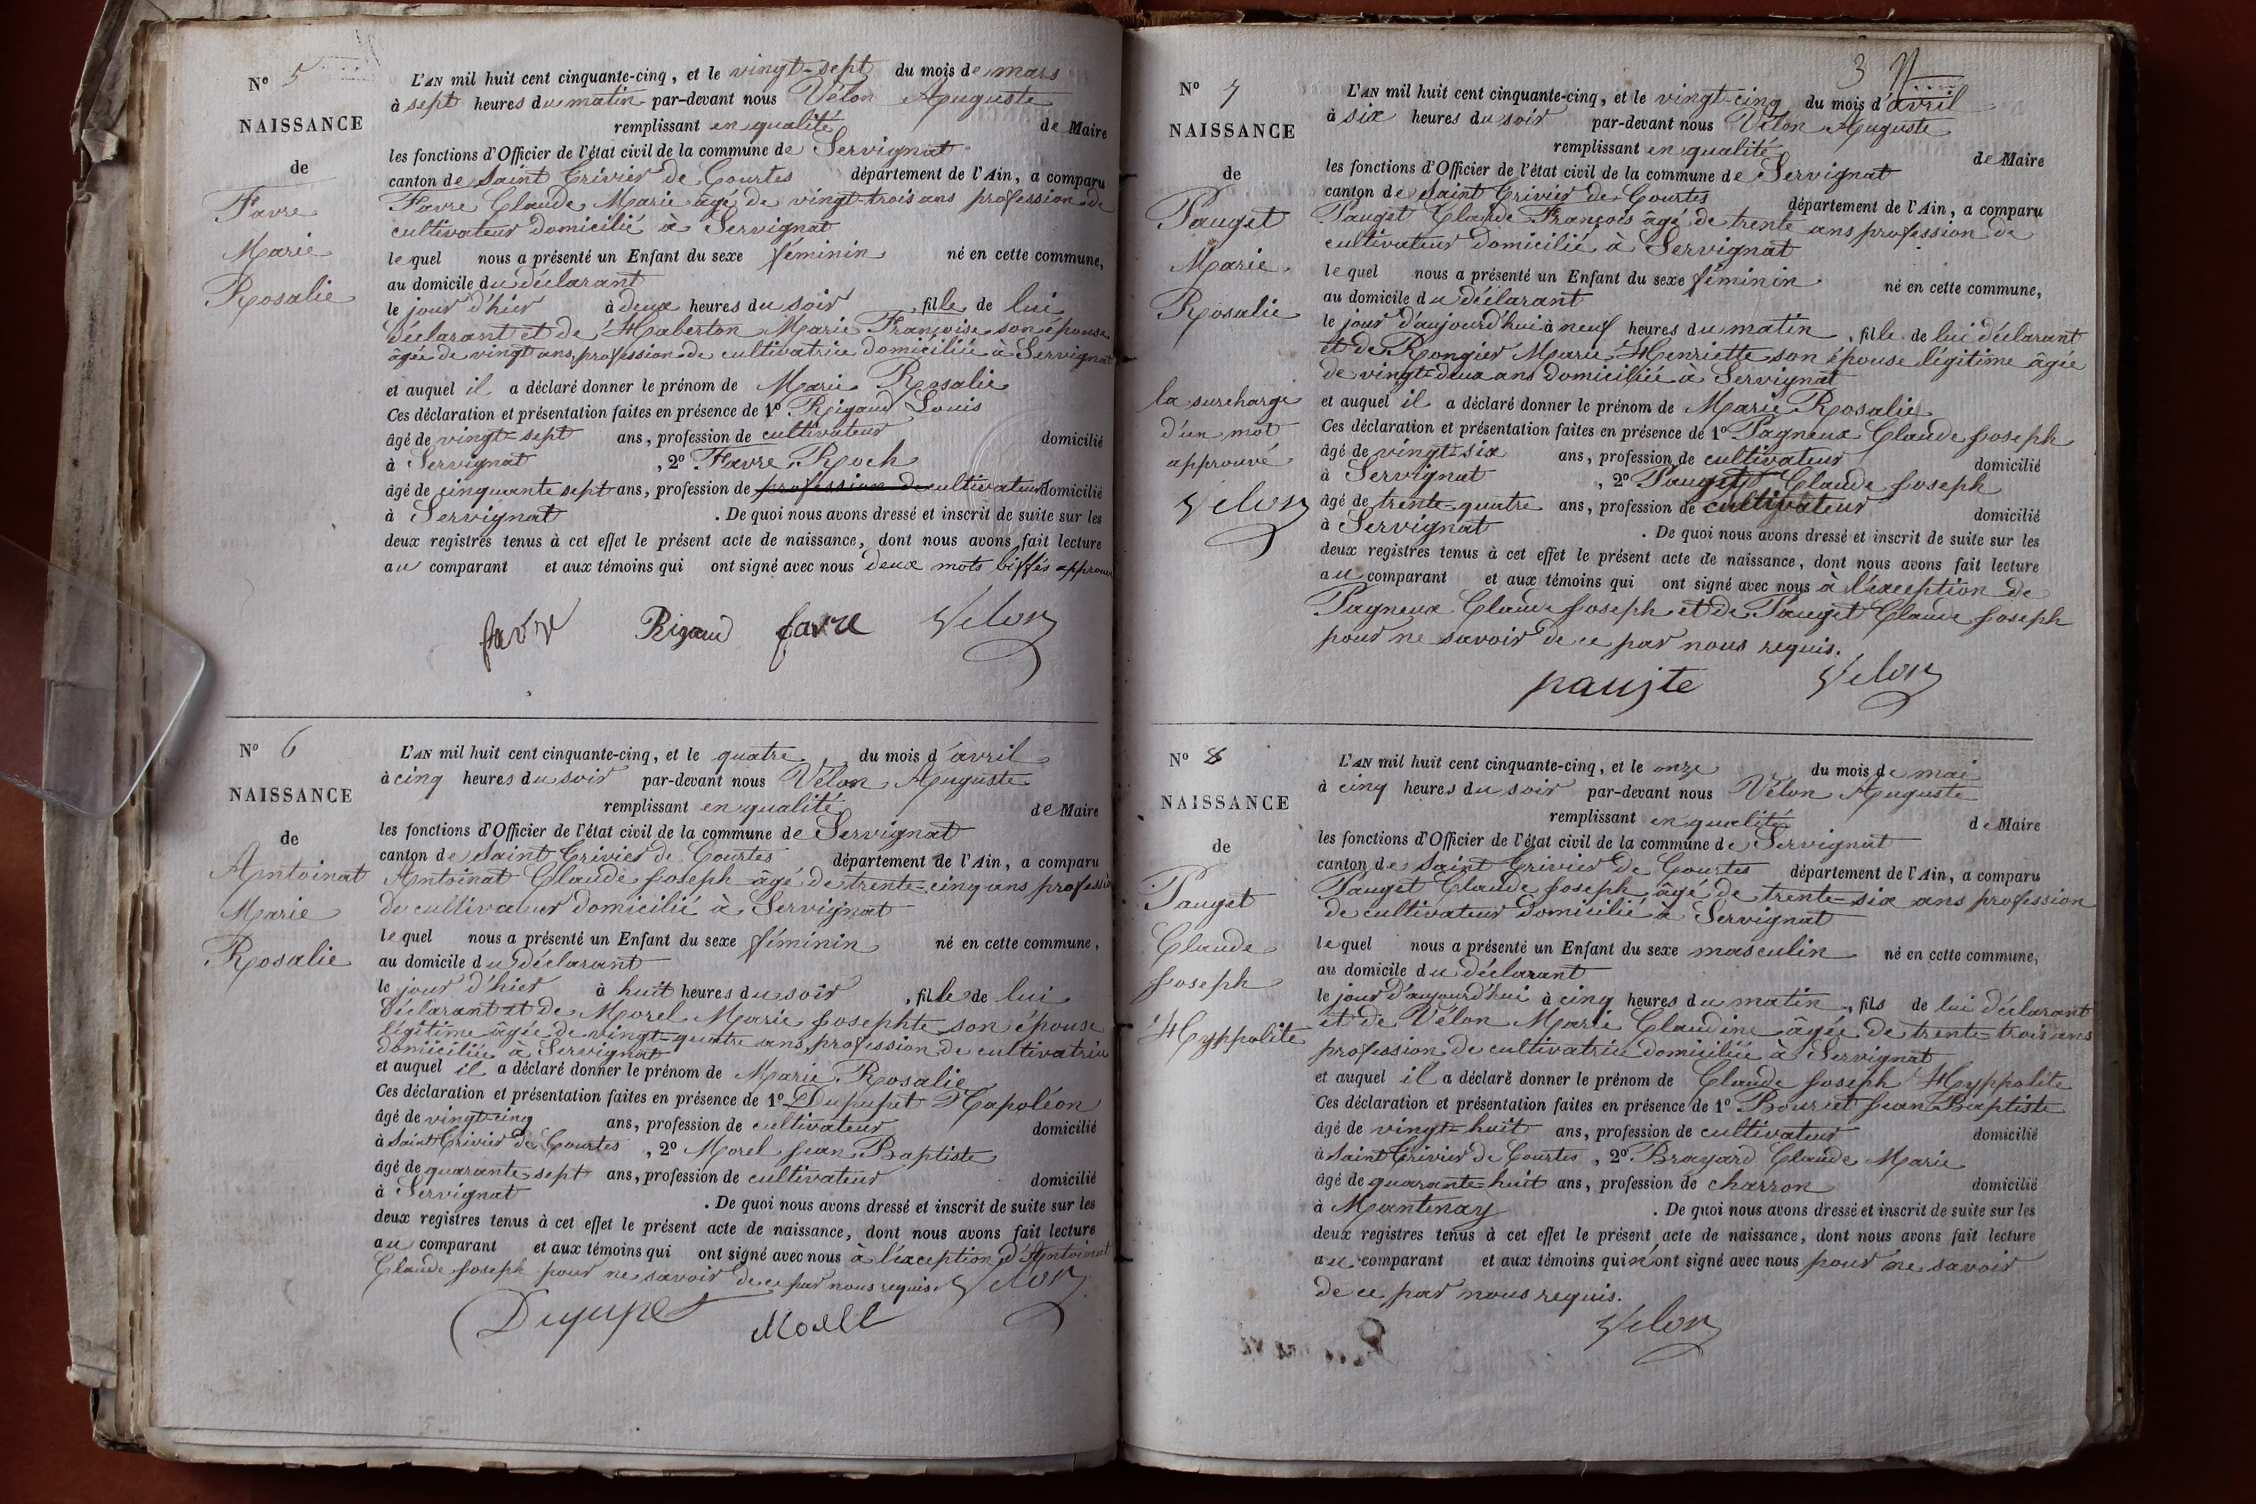 N° 5
NAISSANCE
de
Favre
Marie
Rosalie
L'AN mil huit cent cinquante-cinq, et le vingt-sept du mois de mars
à sept heures du matin par-devant nous Vélon Auguste
remplissant en qualité de Maire
les fonctions d'Officier de l'état civil de la commune de Servignat
canton de Saint Trivier de Courtes département de l'Ain, a comparu
Favre Claude Marie âgé de vingt-trois ans profession de
cultivateur domicilié à Servignat
lequel nous a présenté un Enfant du sexe féminin né en cette commune,
au domicile du déclarant
le jour d'hier à deux heures du soir, fille de lui
déclarant et de Haberton Marie Françoise son épouse
âgée de vingt ans, profession de cultivatrice domiciliée à Servignat
et auquel il a déclaré donner le prénom de Marie Rosalie
Ces déclaration et présentation faites en présence de 1° Rigaud Louis
âgé de vingt-sept ans, profession de cultivateur domicilié
à Servignat, 2° Favre Roch
âgé de cinquante sept ans, profession de profession de cultivateur domicilié
à Servignat. De quoi nous avons dressé et inscrit de suite sur les
deux registres tenus à cet effet le présent acte de naissance, dont nous avons fait lecture
au comparant et aux témoins qui ont signé avec nous deux mots biffés approuvé
favre Rigaud favre Velon
N° 6
NAISSANCE
de
Antoinat
Marie
Rosalie
L'AN mil huit cent cinquante-cinq, et le quatre du mois d'avril
à cinq heures du soir par-devant nous Vélon Auguste
remplissant en qualité de Maire
les fonctions d'Officier de l'état civil de la commune de Servignat
canton de Saint Trivier de Courtes département de l'Ain, a comparu
Antoinat Claude Joseph âgé de trente-cinq ans profession
de cultivateur domicilié à Servignat
lequel nous a présenté un Enfant du sexe féminin né en cette commune,
au domicile du déclarant
le jour d'hier à huit heures du soir, fille de lui
déclarant et de Morel Marie Josephte son épouse
légitime âgée de vingt-quatre ans, profession de cultivatrice
domiciliée à Servignat
et auquel il a déclaré donner le prénom de Marie Rosalie
Ces déclaration et présentation faites en présence de 1° Dupupet Napoléon
âgé de vingt-cinq ans, profession de cultivateur domicilié
à Saint Trivier de Courtes, 2° Morel Jean Baptiste
âgé de quarante sept ans, profession de cultivateur domicilié
à Servignat. De quoi nous avons dressé et inscrit de suite sur les
deux registres tenus à cet effet le présent acte de naissance, dont nous avons fait lecture
au comparant et aux témoins qui ont signé avec nous à l'exception d'Antoinat
Claude Joseph pour ne savoir de ce par nous requis. Velon
Dupupet Morel
3
N° 7
NAISSANCE
de
Pauget
Marie
Rosalie
la surcharge
d'un mot
approuvé
Velon
L'AN mil huit cent cinquante-cinq, et le vingt-cinq du mois d'avril
à six heures du soir par-devant nous Vélon Auguste
remplissant en qualité de Maire
les fonctions d'Officier de l'état civil de la commune de Servignat
canton de Saint Trivier de Courtes département de l'Ain, a comparu
Pauget Claude François âgé de trente ans profession de
cultivateur domicilié à Servignat
lequel nous a présenté un Enfant du sexe féminin né en cette commune,
au domicile du déclarant
le jour d'aujourd'hui à neuf heures du matin, fille de lui déclarant
et de Rongier Marie Henriette son épouse légitime âgée
de vingt-deux ans domiciliée à Servignat
et auquel il a déclaré donner le prénom de Marie Rosalie
Ces déclaration et présentation faites en présence de 1° Pagneux Claude Joseph
âgé de vingt-six ans, profession de cultivateur domicilié
à Servignat, 2° Pauget Claude Joseph
âgé de trente-quatre ans, profession de cultivateur domicilié
à Servignat. De quoi nous avons dressé et inscrit de suite sur les
deux registres tenus à cet effet le présent acte de naissance, dont nous avons fait lecture
au comparant et aux témoins qui ont signé avec nous à l'exception de
Pagneux Claude Joseph et de Pauget Claude Joseph
pour ne savoir de ce par nous requis.
paujte Velon
N° 8
NAISSANCE
de
Pauget
Claude
Joseph
Hyppolite
L'AN mil huit cent cinquante-cinq, et le onze du mois de mai
à cinq heures du soir par-devant nous Vélon Auguste
remplissant en qualité de Maire
les fonctions d'Officier de l'état civil de la commune de Servignat
canton de Saint Trivier de Courtes département de l'Ain, a comparu
Pauget Claude Joseph âgé de trente-six ans profession
de cultivateur domicilié à Servignat
lequel nous a présenté un Enfant du sexe masculin né en cette commune,
au domicile du déclarant
le jour d'aujourd'hui à cinq heures du matin, fils de lui déclarant
et de Vélon Marie Claudine âgée de trente-trois ans
profession de cultivatrice domiciliée à Servignat
et auquel il a déclaré donner le prénom de Claude Joseph Hyppolite
Ces déclaration et présentation faites en présence de 1° Bourcet Jean Baptiste
âgé de vingt-huit ans, profession de cultivateur domicilié
à Saint Trivier de Courtes, 2° Brayard Claude Marie
âgé de quarante-huit ans, profession de charron domicilié
à Mantenay. De quoi nous avons dressé et inscrit de suite sur les
deux registres tenus à cet effet le présent acte de naissance, dont nous avons fait lecture
au comparant et aux témoins qui n'ont signé avec nous pour ne savoir
de ce par nous requis.
Velon